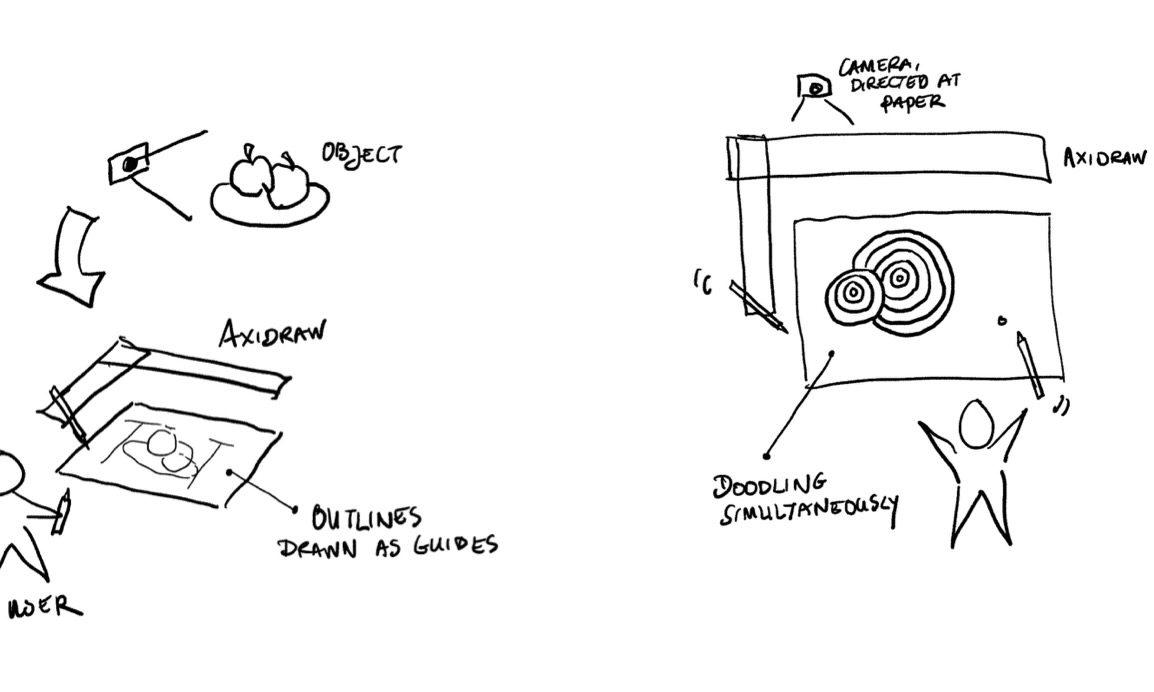 OBJECT
AXIDRAW
OUTLINES
DRAWN AS GUIDES
USER
CAMERA,
DIRECTED AT
PAPER
AXIDRAW
DOODLING
SIMULTANEOUSLY